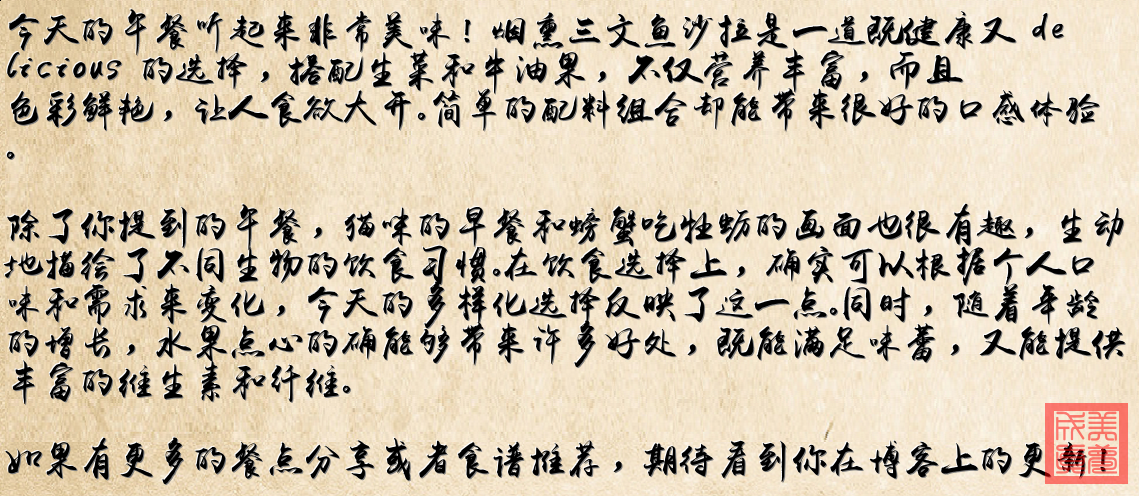 今天的午餐听起来非常美味！烟熏三文鱼沙拉是一道既健康又 de
licious 的选择，搭配生菜和牛油果，不仅营养丰富，而且
色彩鲜艳，让人食欲大开。简单的配料组合却能带来很好的口感体验
。
除了你提到的午餐，猫咪的早餐和螃蟹吃牡蛎的画面也很有趣，生动
地描绘了不同生物的饮食习惯。在饮食选择上，确实可以根据个人口
味和需求来变化，今天的多样化选择反映了这一点。同时，随着年龄
的增长，水果点心的确能够带来许多好处，既能满足味蕾，又能提供
丰富的维生素和纤维。
如果有更多的餐点分享或者食谱推荐，期待看到你在博客上的更新！